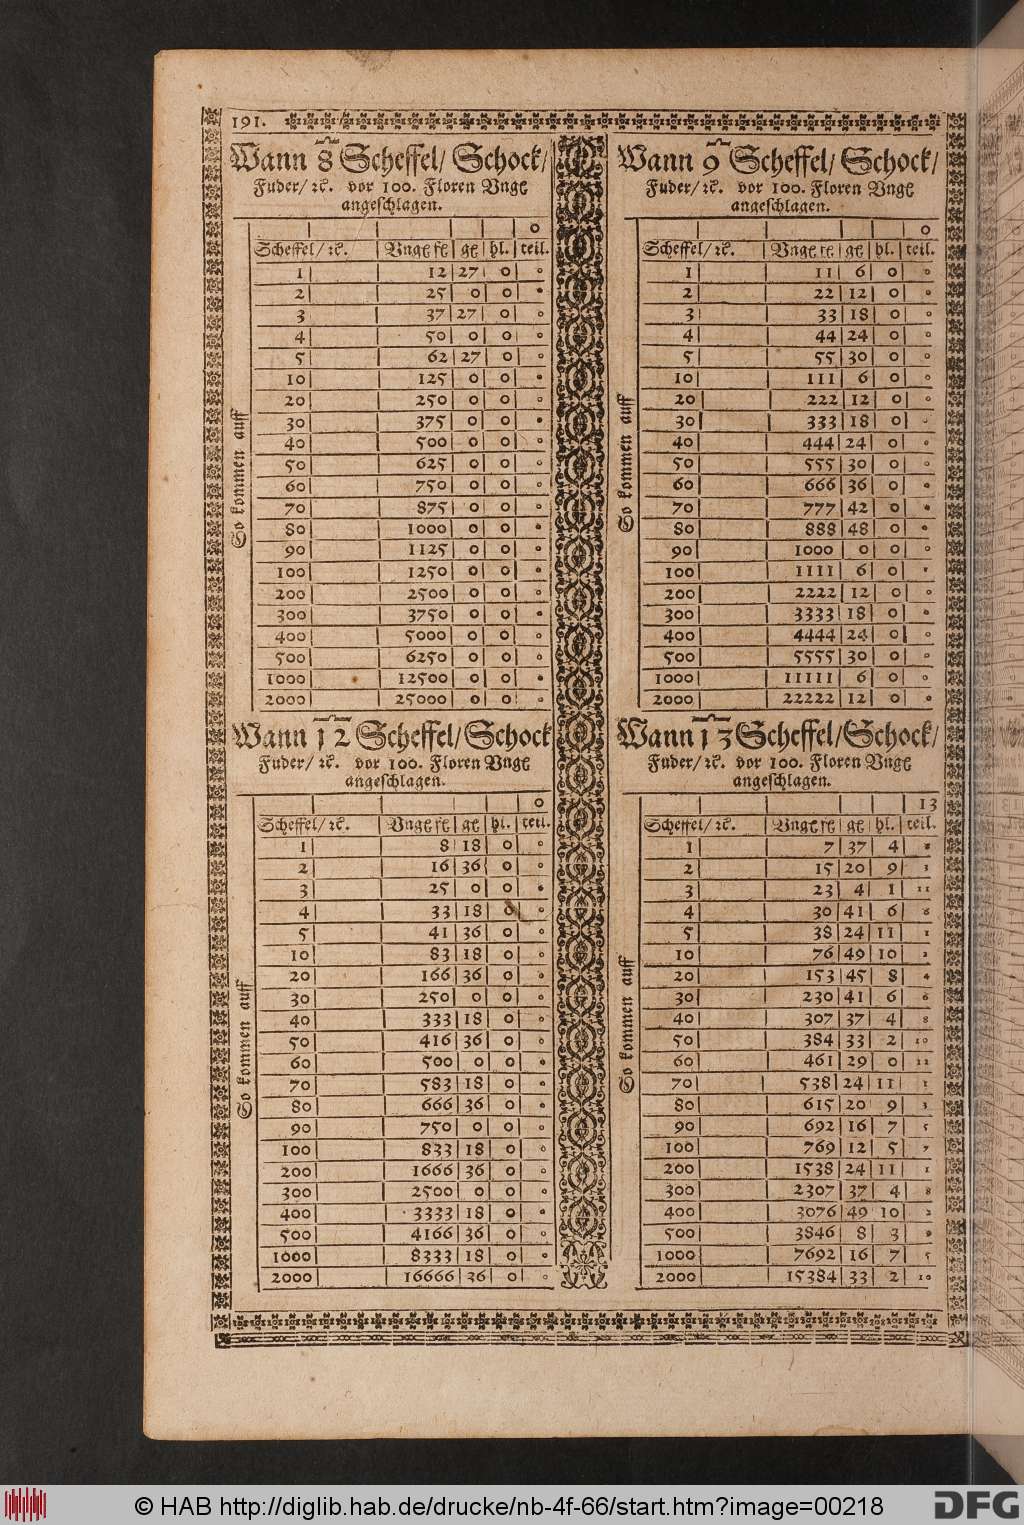 191.
Wann 8 Scheffel/ Schock/
Fuder/ ꝛc. vor 100. Floren Vng
angeschlagen.
0
Scheffel/ ꝛc. Vng fl gl hl. teil.
So kommen auff
1 12 27 0 0
2 25 0 0 0
3 37 27 0 0
4 50 0 0 0
5 62 27 0 0
10 125 0 0 0
20 250 0 0 0
30 375 0 0 0
40 500 0 0 0
50 625 0 0 0
60 750 0 0 0
70 875 0 0 0
80 1000 0 0 0
90 1125 0 0 0
100 1250 0 0 0
200 2500 0 0 0
300 3750 0 0 0
400 5000 0 0 0
500 6250 0 0 0
1000 12500 0 0 0
2000 25000 0 0 0
Wann 9 Scheffel/ Schock/
Fuder/ ꝛc. vor 100. Floren Vng
angeschlagen.
0
Scheffel/ ꝛc. Vng fl gl hl. teil.
So kommen auff
1 11 6 0 0
2 22 12 0 0
3 33 18 0 0
4 44 24 0 0
5 55 30 0 0
10 111 6 0 0
20 222 12 0 0
30 333 18 0 0
40 444 24 0 0
50 555 30 0 0
60 666 36 0 0
70 777 42 0 0
80 888 48 0 0
90 1000 0 0 0
100 1111 6 0 0
200 2222 12 0 0
300 3333 18 0 0
400 4444 24 0 0
500 5555 30 0 0
1000 11111 6 0 0
2000 22222 12 0 0
Wann 12 Scheffel/ Schock
Fuder/ ꝛc. vor 100. Floren Vng
angeschlagen.
0
Scheffel/ ꝛc. Vng fl gl hl. teil.
So kommen auff
1 8 18 0 0
2 16 36 0 0
3 25 0 0 0
4 33 18 0 0
5 41 36 0 0
10 83 18 0 0
20 166 36 0 0
30 250 0 0 0
40 333 18 0 0
50 416 36 0 0
60 500 0 0 0
70 583 18 0 0
80 666 36 0 0
90 750 0 0 0
100 833 18 0 0
200 1666 36 0 0
300 2500 0 0 0
400 3333 18 0 0
500 4166 36 0 0
1000 8333 18 0 0
2000 16666 36 0 0
Wann 13 Scheffel/ Schock/
Fuder/ ꝛc. vor 100. Floren Vng
angeschlagen.
13
Scheffel/ ꝛc. Vng fl gl hl. teil.
So kommen auff
1 7 37 4 8
2 15 20 9 3
3 23 4 1 11
4 30 41 6 6
5 38 24 11 1
10 76 49 10 2
20 153 45 8 4
30 230 41 6 6
40 307 37 4 8
50 384 33 2 10
60 461 29 0 12
70 538 24 11 1
80 615 20 9 3
90 692 16 7 5
100 769 12 5 7
200 1538 24 11 1
300 2307 37 4 8
400 3076 49 10 2
500 3846 8 3 9
1000 7692 16 7 5
2000 15384 33 2 10
© HAB http://diglib.hab.de/drucke/nb-4f-66/start.htm?image=00218
DFG